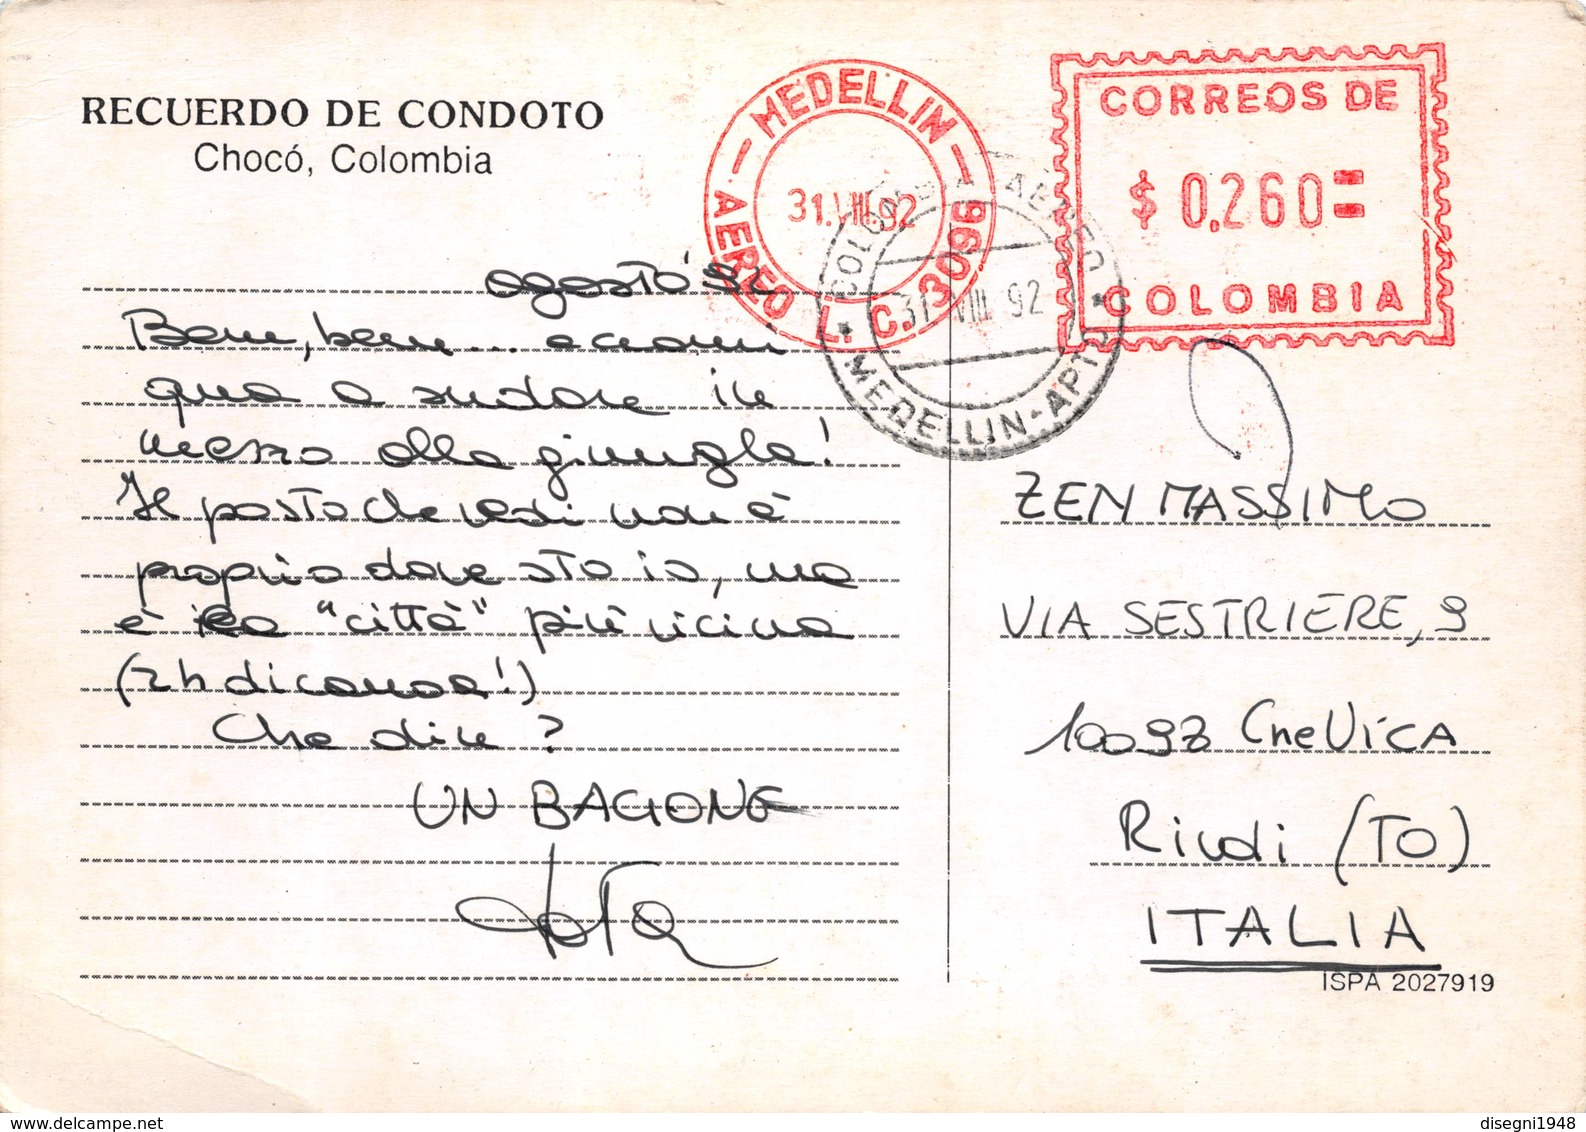 RECUERDO DE CONDOTO
Chocó, Colombia
MEDELLIN
AEREO L. C. 3096
31.VIII.92
COLOMBIA AEREO
31 VIII 92
MEDELLIN-APTO
CORREOS DE
$ 0.260=
COLOMBIA
agosto '92
Bene, bene... eccomi
qua a sudare in
mezzo alla giungla!
Il posto che vedi non è
proprio dove sto io, ma
è la "città" più vicina
(2h di canoa!)
Che dire?
UN BACIONE
ZEN MASSIMO
VIA SESTRIERE, 9
10098 CASCINE VICA
Rivoli (TO)
ITALIA
ISPA 2027919
disegni1948